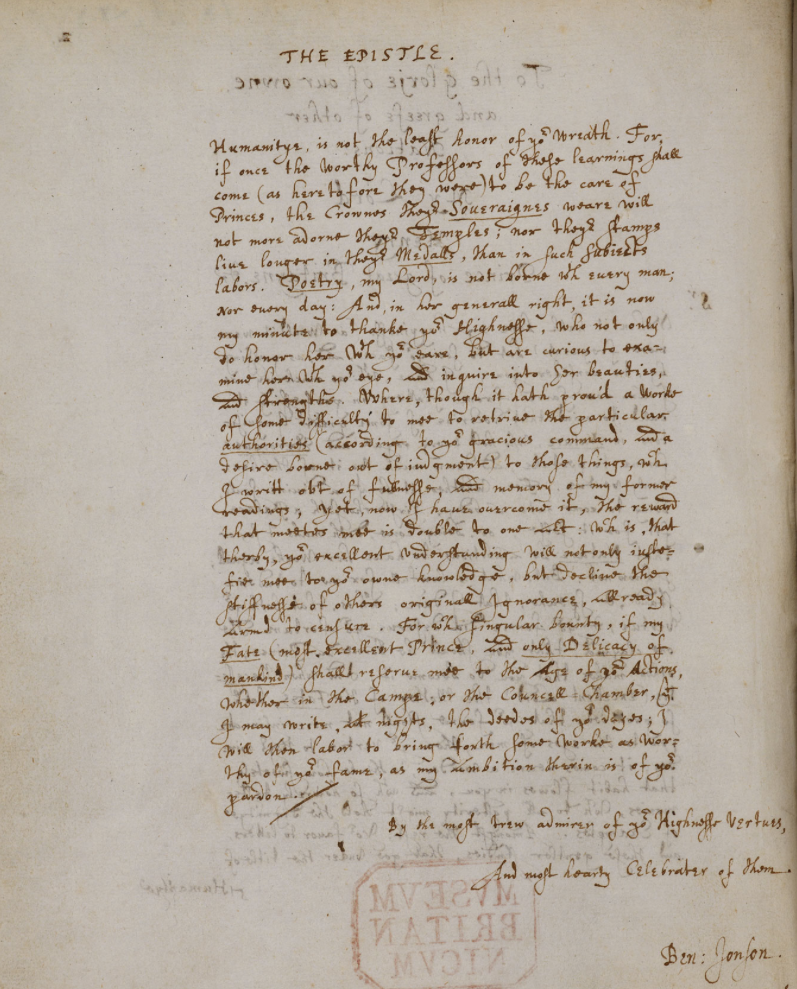 THE EPISTLE.
Humanitye, is not the least honor of yor Wreath. For,
if once the Worthy Professors of these learnings shall
come (as heretofore they were) to be the care of
Princes, the Crownes theyr Soueraignes weare will
not more adorne theyr Temples; nor theyr stamps
liue longer in theyr Medalls, than in such subiects
labors. Poetry, my Lord, is not borne wth euery man;
Nor euery day: And, in her generall right, it is now
my minute to thanke yor Highnesse, who not only
do honor her wth yor eare, but are curious to exa=
mine her wth yor eye, and inquire into her beauties,
and strengths. Where, though it hath prou'd a Worke
of some difficulty to mee to retriue the particular
authorities (according to yor gracious command, and a
desire borne out of iudgment) to those things, wch
I writt out of fullnesse, and memory of my former
readings; yet, now I haue ouercome it, the reward
that meetes mee is double to one act: wch is, that
therby, yor excellent vnderstanding will not only iuste=
fie mee to yor owne knowledge, but decline the
stiffnesse of others originall Ignorance, allready
armd to censure. For wch singular bounty, if my
Fate (most excellent Prince, and only Delicacy of
mankind) shall reserue mee to the Age of yor Actions,
whether in the Campe, or the Councell-Chamber, yt
I may write, at nights, the deedes of yor dayes; I
will then labor to bring forth some Worke as wor=
thy of yor fame, as my ambition therin is of yor
pardon.
By the most trew admirer of yor Highnesse Vertues,
And most hearty Celebrater of them.
Ben: Jonson.
MVSEVM
BRITAN
NICVM